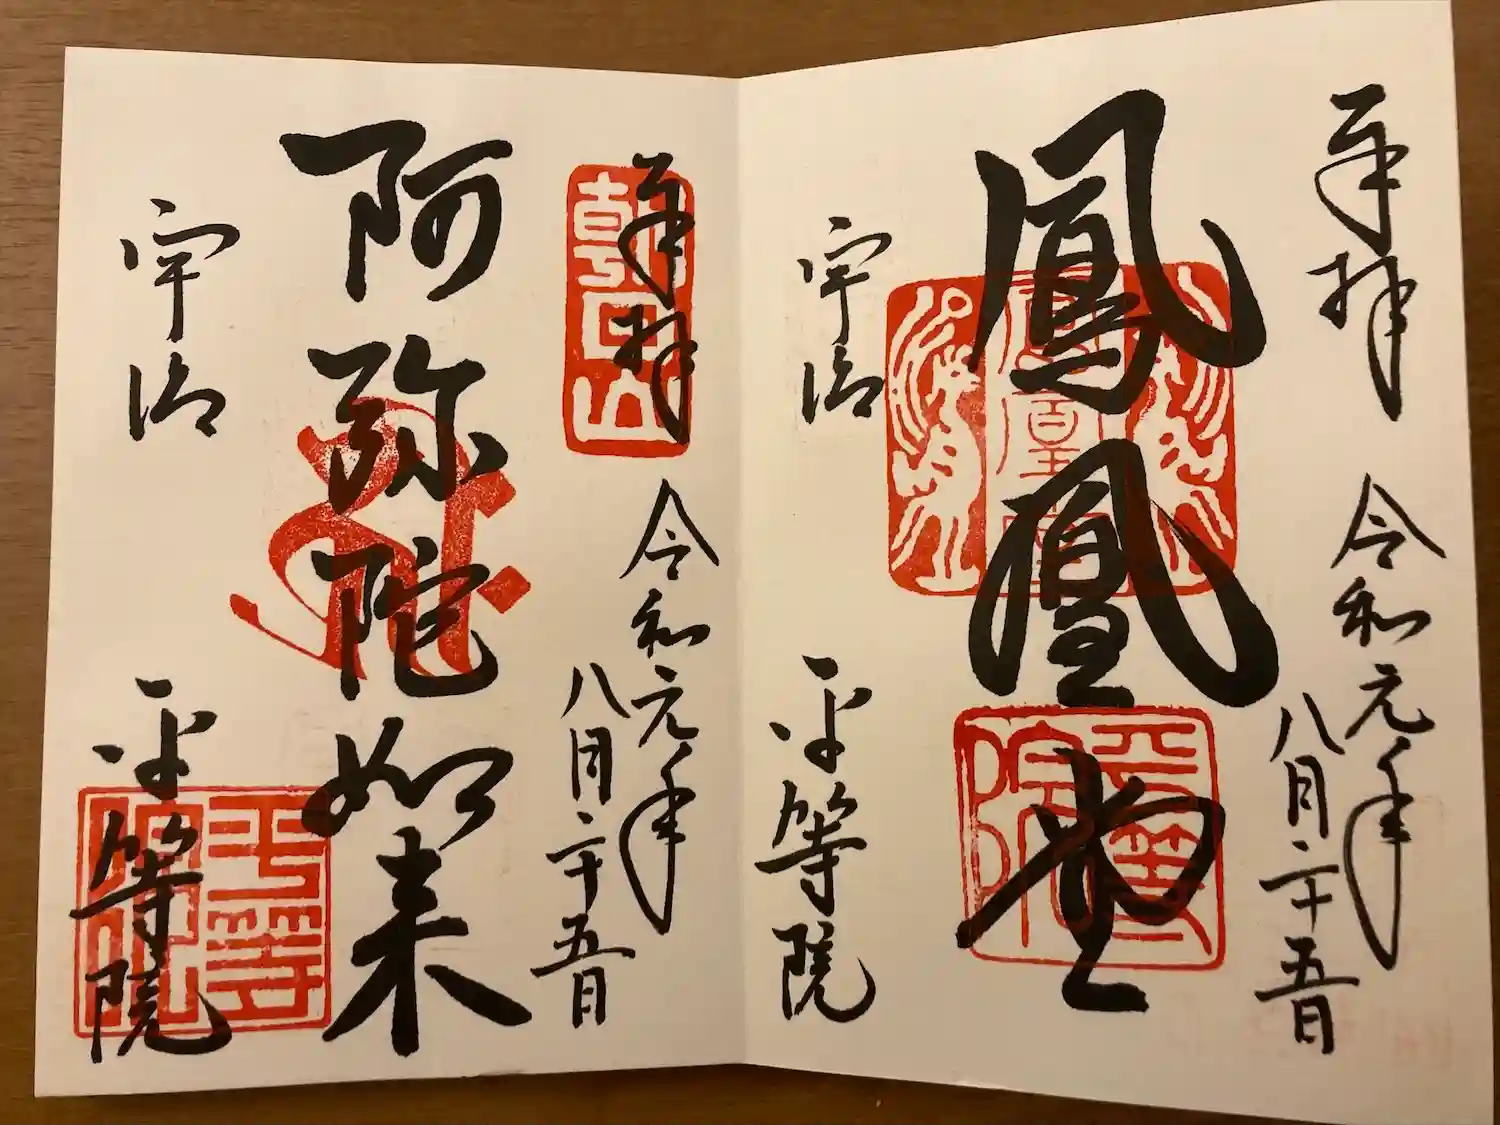 奉拝
令和元年
八月二十五日
鳳凰堂
鳳凰堂
平等院
宇治
平等院
奉拝
朝日山
令和元年
八月二十五日
阿弥陀如来
宇治
平等院
平等院